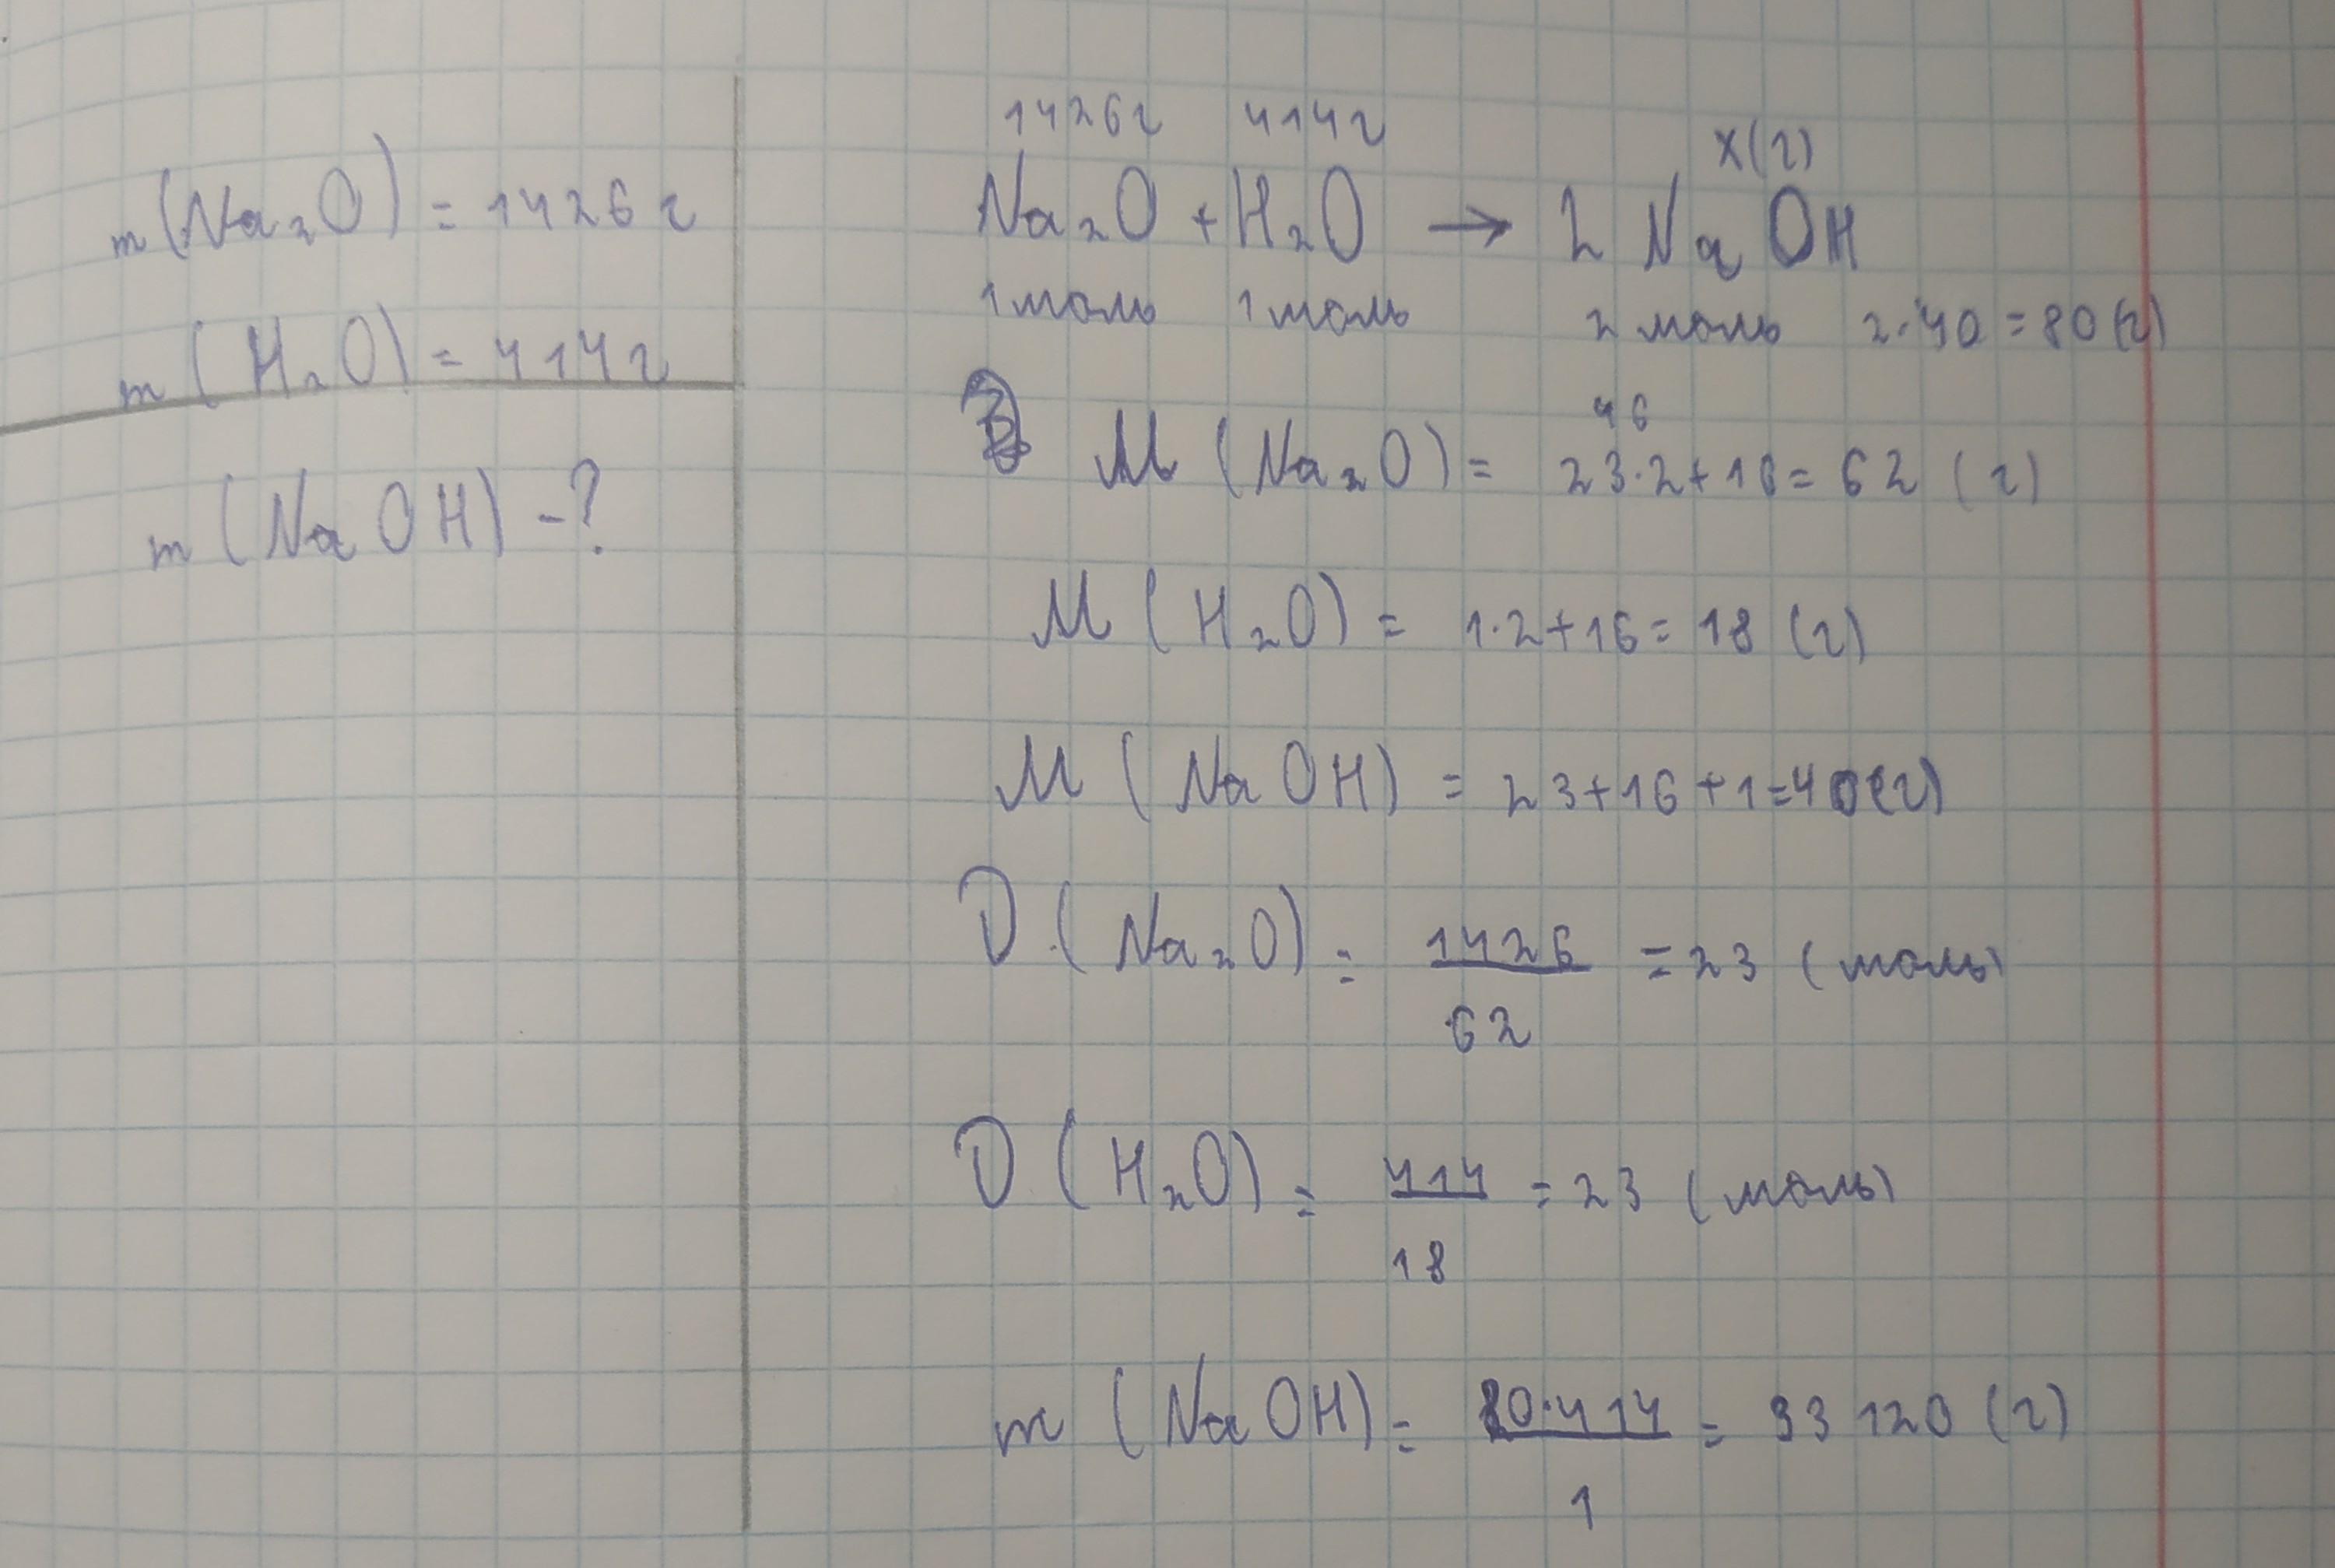 m(Na₂O) = 1426 г
m(H₂O) = 414 г
m(NaOH) - ?
1426 г 414 г x(г)
Na₂O + H₂O → 2NaOH
1 моль 1 моль 2 моль 2·40=80(г)
46
M(Na₂O) = 23·2+16=62 (г)
M(H₂O) = 1·2+16=18 (г)
M(NaOH) = 23+16+1=40(г)
D(Na₂O) = 1426/62 = 23 (моль)
D(H₂O) = 414/18 = 23 (моль)
m(NaOH) = 80·414/1 = 33120 (г)